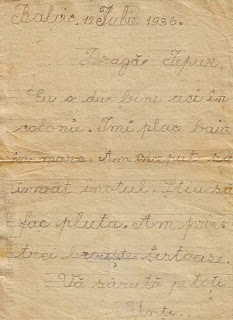 Balcic, 12 Iulie 1936.
Dragă Iepur,
Eu o duc bine aci în
colonie. Îmi plac baia
în mare. Am început să
învăt înotul. Știu să
fac pluta. Am prins
trei broaște țestoase.
Vă sărută pe toți